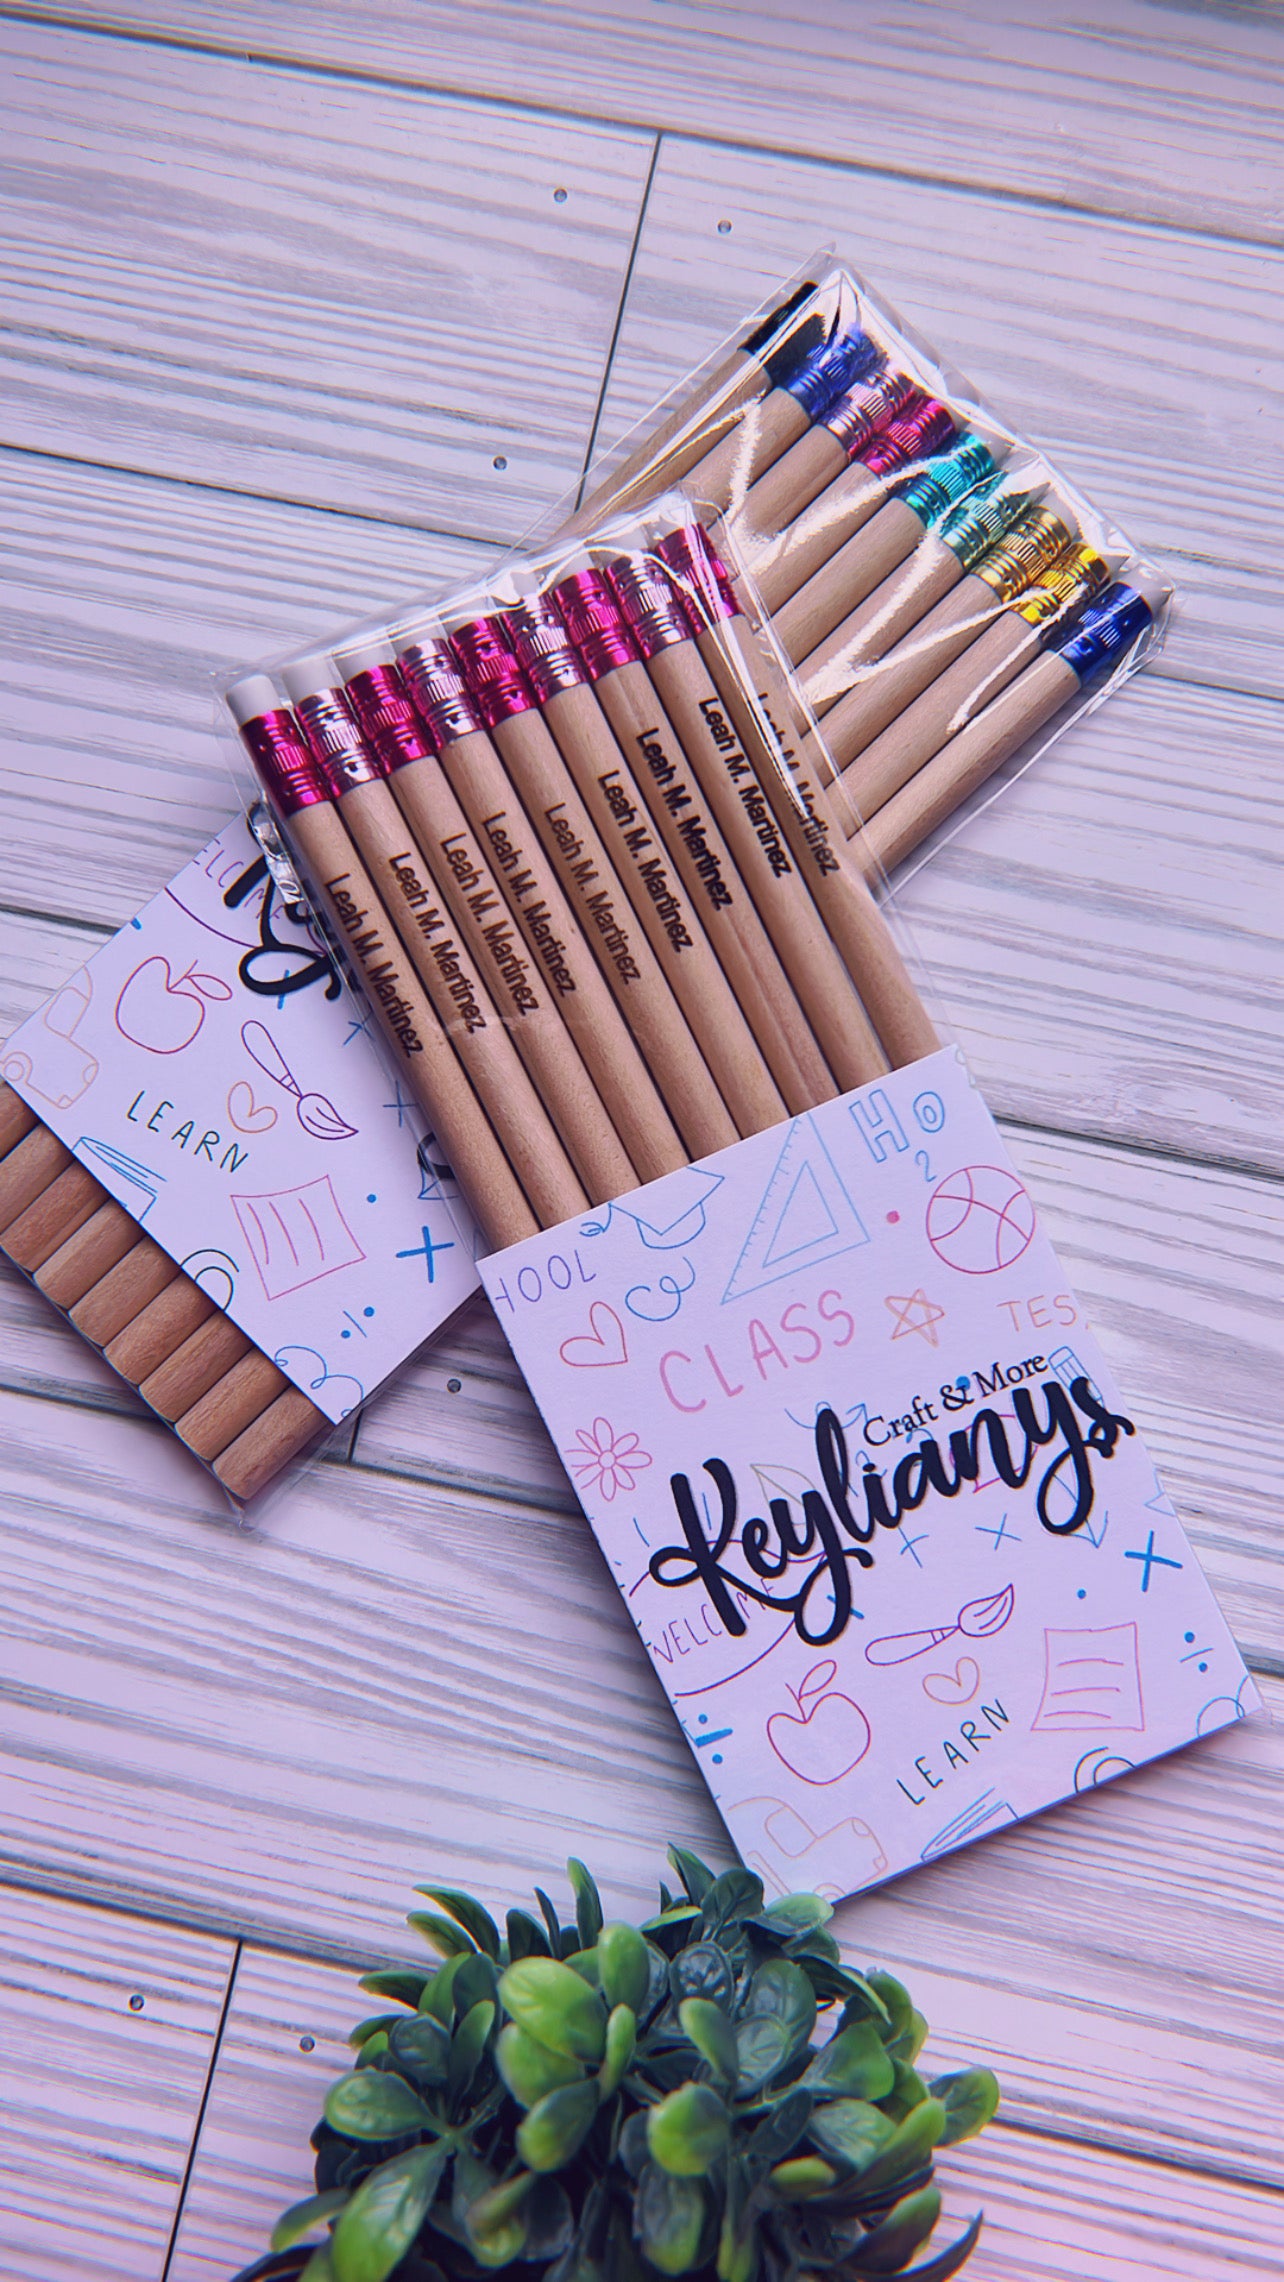 Leah M. Martinez
Leah M. Martinez
Leah M. Martinez
Leah M. Martinez
Leah M. Martinez
Leah M. Martinez
Leah M. Martinez
Leah M. Martinez
Leah M. Martinez
WELCOME
LEARN
H2O
HOOL
CLASS
TES
Craft & More
Keylianys
WELCOME
LEARN